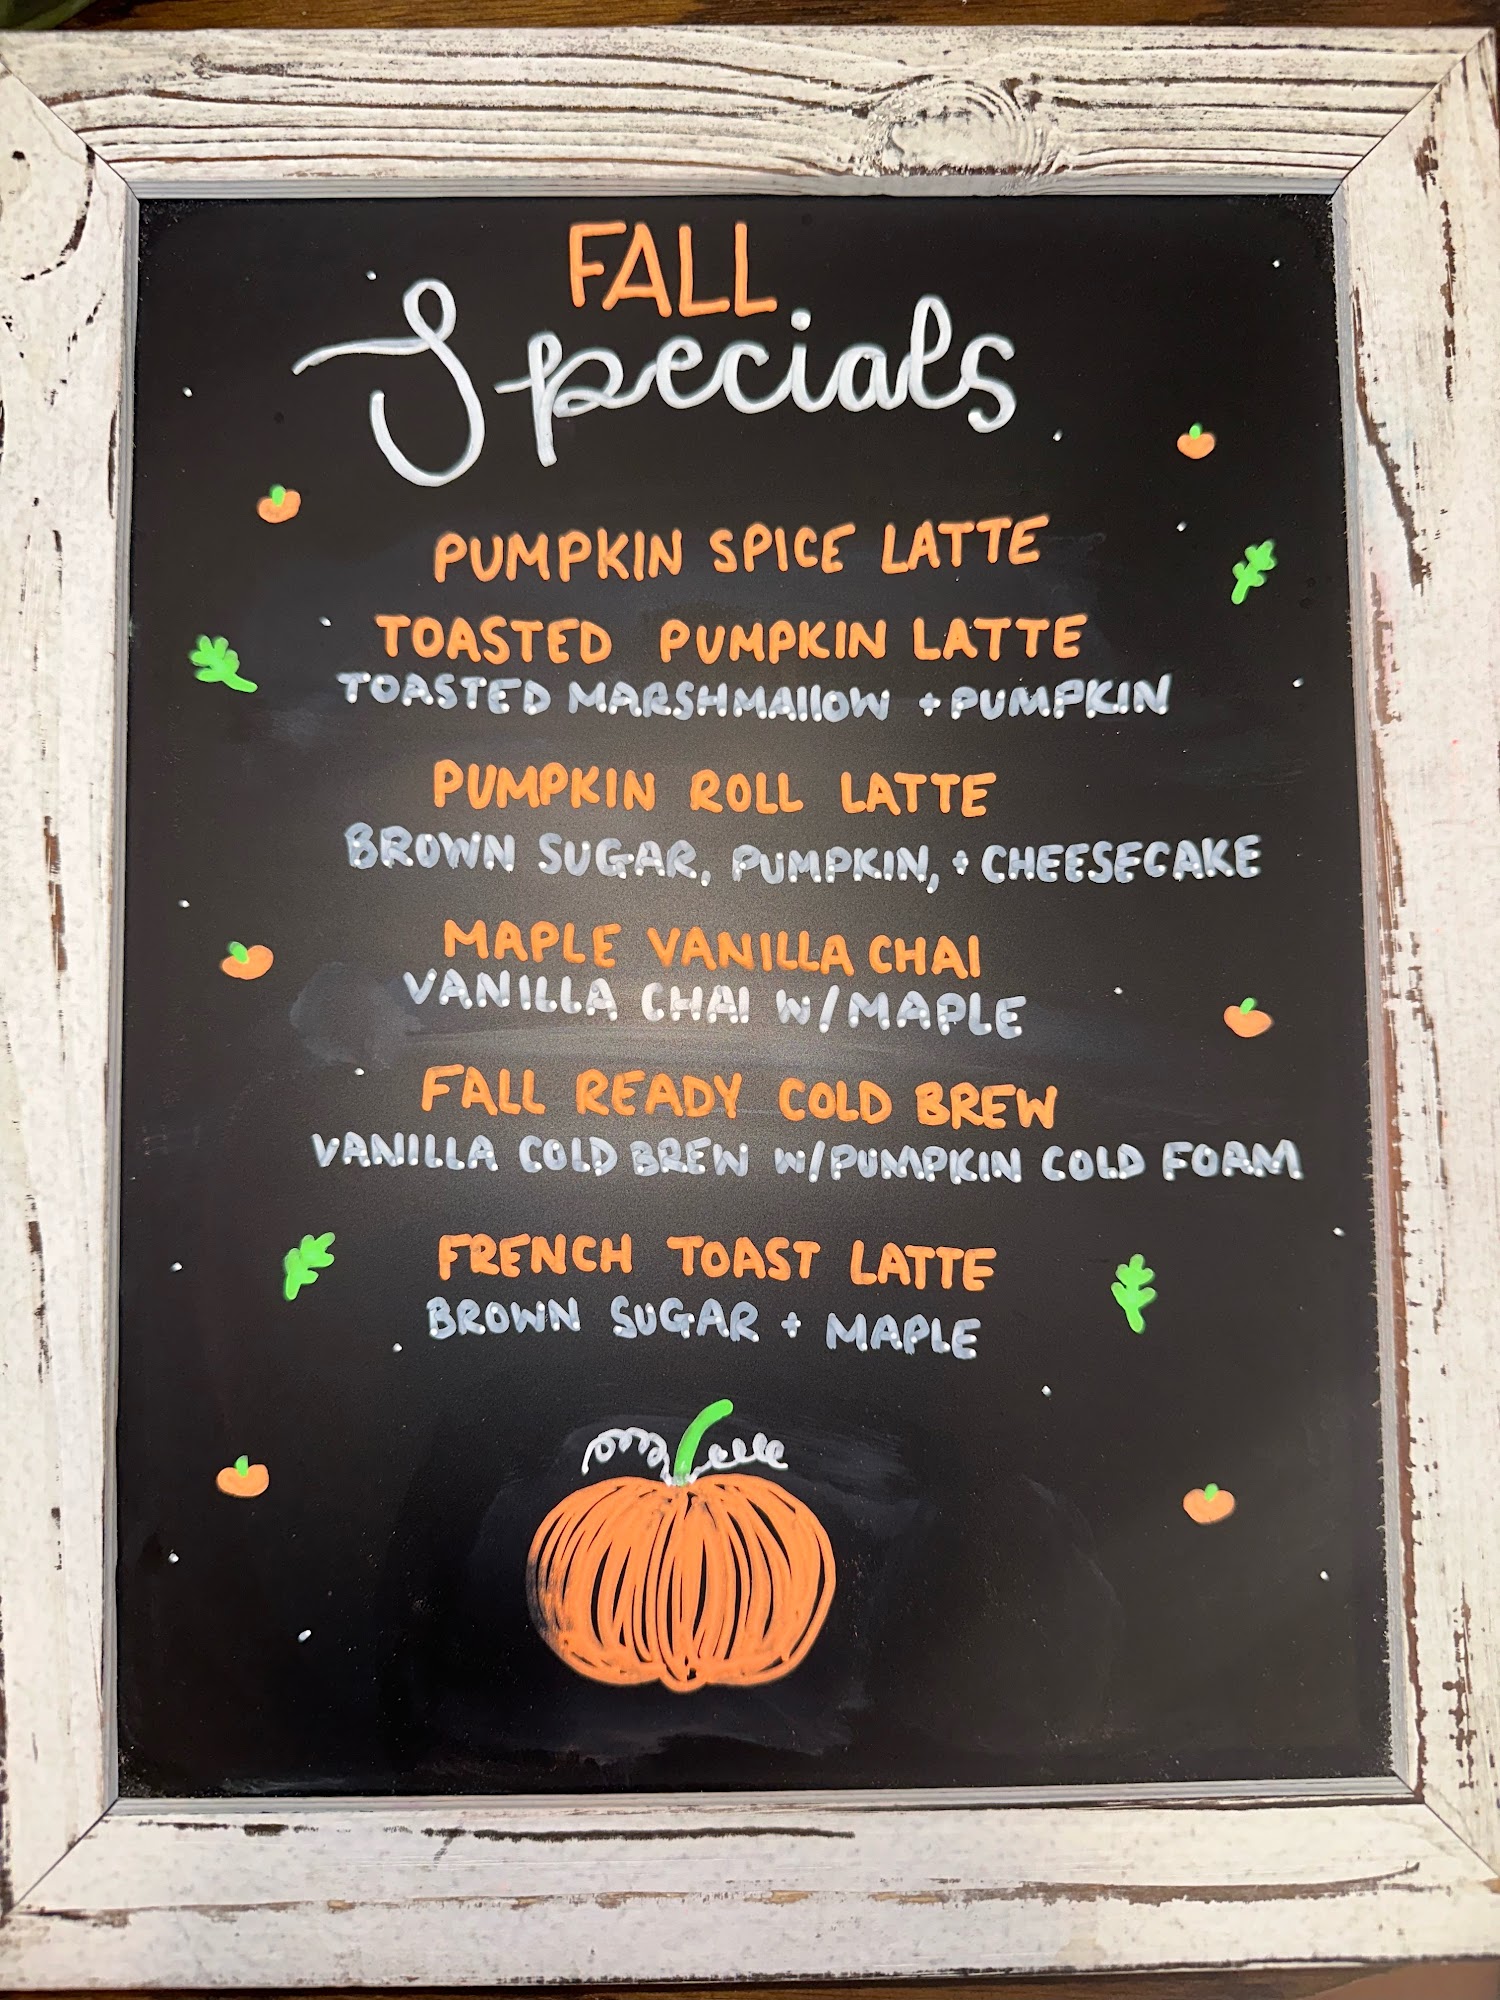 FALL
Specials
PUMPKIN SPICE LATTE
TOASTED PUMPKIN LATTE
TOASTED MARSHMAllOW + PUMPKIN
PUMPKIN ROLL LATTE
BROWN SUGAR, PUMPKIN, + CHEESECAKE
MAPLE VANILLA CHAI
VANILLA CHAI W/MAPLE
FALL READY COLD BREW
VANILLA COLD BREW W/PUMPKIN COLD FOAM
FRENCH TOAST LATTE
BROWN SUGAR + MAPLE